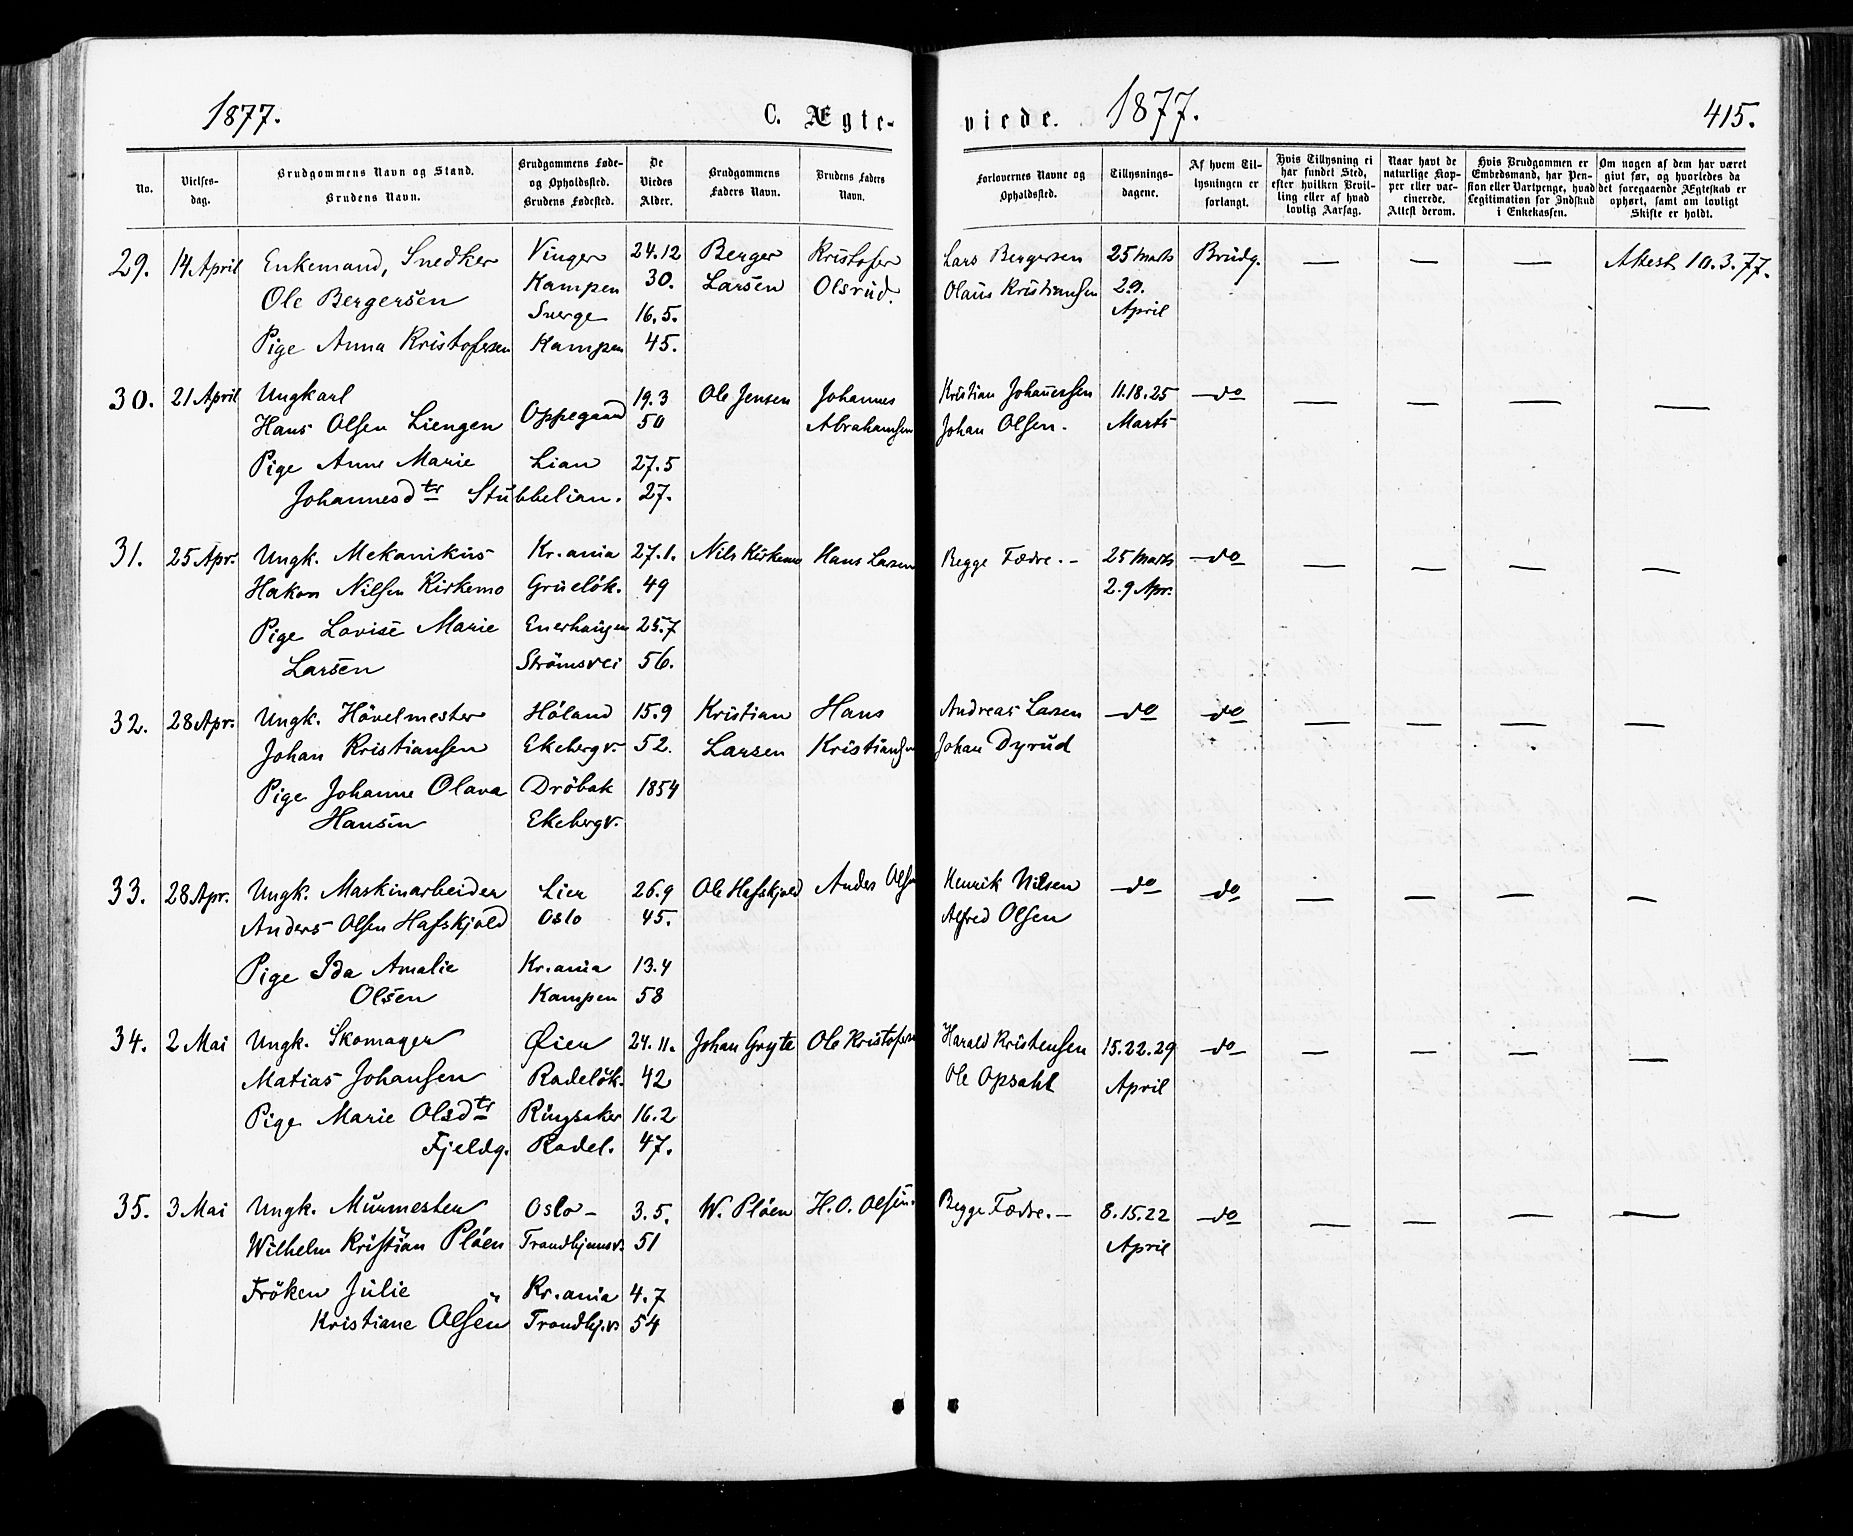 1877. C. Ægte- viede. 1877. 415.
No.
Vielses-
dag.
Brudgommens Navn og Stand.
Brudens Navn.
Brudgommens Føde-
og Opholdssted.
Brudens Fødested.
De
Viedes
Alder.
Brudgommens
Faders Navn.
Brudens Faders
Navn.
Forlovernes Navne og
Opholdssted.
Tillysnings-
dagene.
Af hvem Til-
lysningen er
forlangt.
Hvis Tillysning ei
har fundet Sted,
efter hvilken Bevil-
ling eller af hvad
lovlig Aarsag.
Naar havt de
naturlige Kop-
per eller vac-
cinerede.
Attest derom.
Hvis Brudgommen er
Embedsmand, har Pen-
sion eller Vartpenge, hvad
Legitimation for Indskud
i Enkekassen.
Om nogen af dem har været
givt før, og hvorledes da
det foregaaende Ægteskab er
ophørt, samt om lovligt
Skifte er holdt.
29. 14 April Enkemand, Snedker Vinger 24.12 Berger Kristofer Lars Bergersen 25 Marts Brudg. — — — Attest 10.3.77.
Ole Bergersen Kampen 30. Larsen Olsrud. Olaus Kristiansen 2.9.
Sverge 16.5. April
Pige Anna Kristofersen Kampen 45.
30. 21 April Ungkarl Oppegaard 19.3 Ole Jensen Johannes Kristian Johanessen 11.18.25 do — — — —
Hans Olsen Liengen 50 Abrahamsen Johan Olsen. Marts
Pige Anne Marie Lian 27.5
Johannesdtr Stubbelian. 27.
31. 25 Apr. Ungk. Mekanikus Kr.ania 27.1. Nils Kirkemo Hans Larsen Begge Fædre.- 25 Marts do — — — —
Hakon Nilsen Kirkemo Grueløk. 49 2.9 Apr.
Pige Lovise Marie Enerhaugen 25.7
Larsen Strömsvei 56.
32. 28 Apr. Ungk. Hövelmester Höland 15.9 Kristian Hans Andreas Larsen do do — — — —
Johan Kristiansen Ekebergv. 52. Larsen Kristiansen Johan Dyrud
Pige Johanne Olava Dröbak 1854
Hansen Ekebergv.
33. 28 Apr. Ungk. Maskinarbeider Lier 26.9 Ole Hafskjold Anders Olsen Henrik Nilsen do do — — — —
Anders Olsen Hafskjold Oslo 45. Alfred Olsen
Pige Ida Amalie Kr.ania 13.4
Olsen Kampen 58
34. 2 Mai Ungk. Skomager Øier 24.11. Johan Gryte Ole Kristofersen Harald Kristensen 15.22.29 do — — — —
Matias Johansen Radeløk. 42 Ole Opsahl April
Pige Marie Olsdtr Ringsaker 16.2
Fjeldg. Radel. 47.
35. 3 Mai Ungk. Murmester Oslo - 3.5. W. Plöen H. O. Olsen. Begge Fædre.- 8.15.22 do — — — —
Wilhelm Kristian Plöen Trondhjemsv. 51 April
Fröken Julie Kr.ania 4.7
Kristiane Olsen Trondhj.v. 54